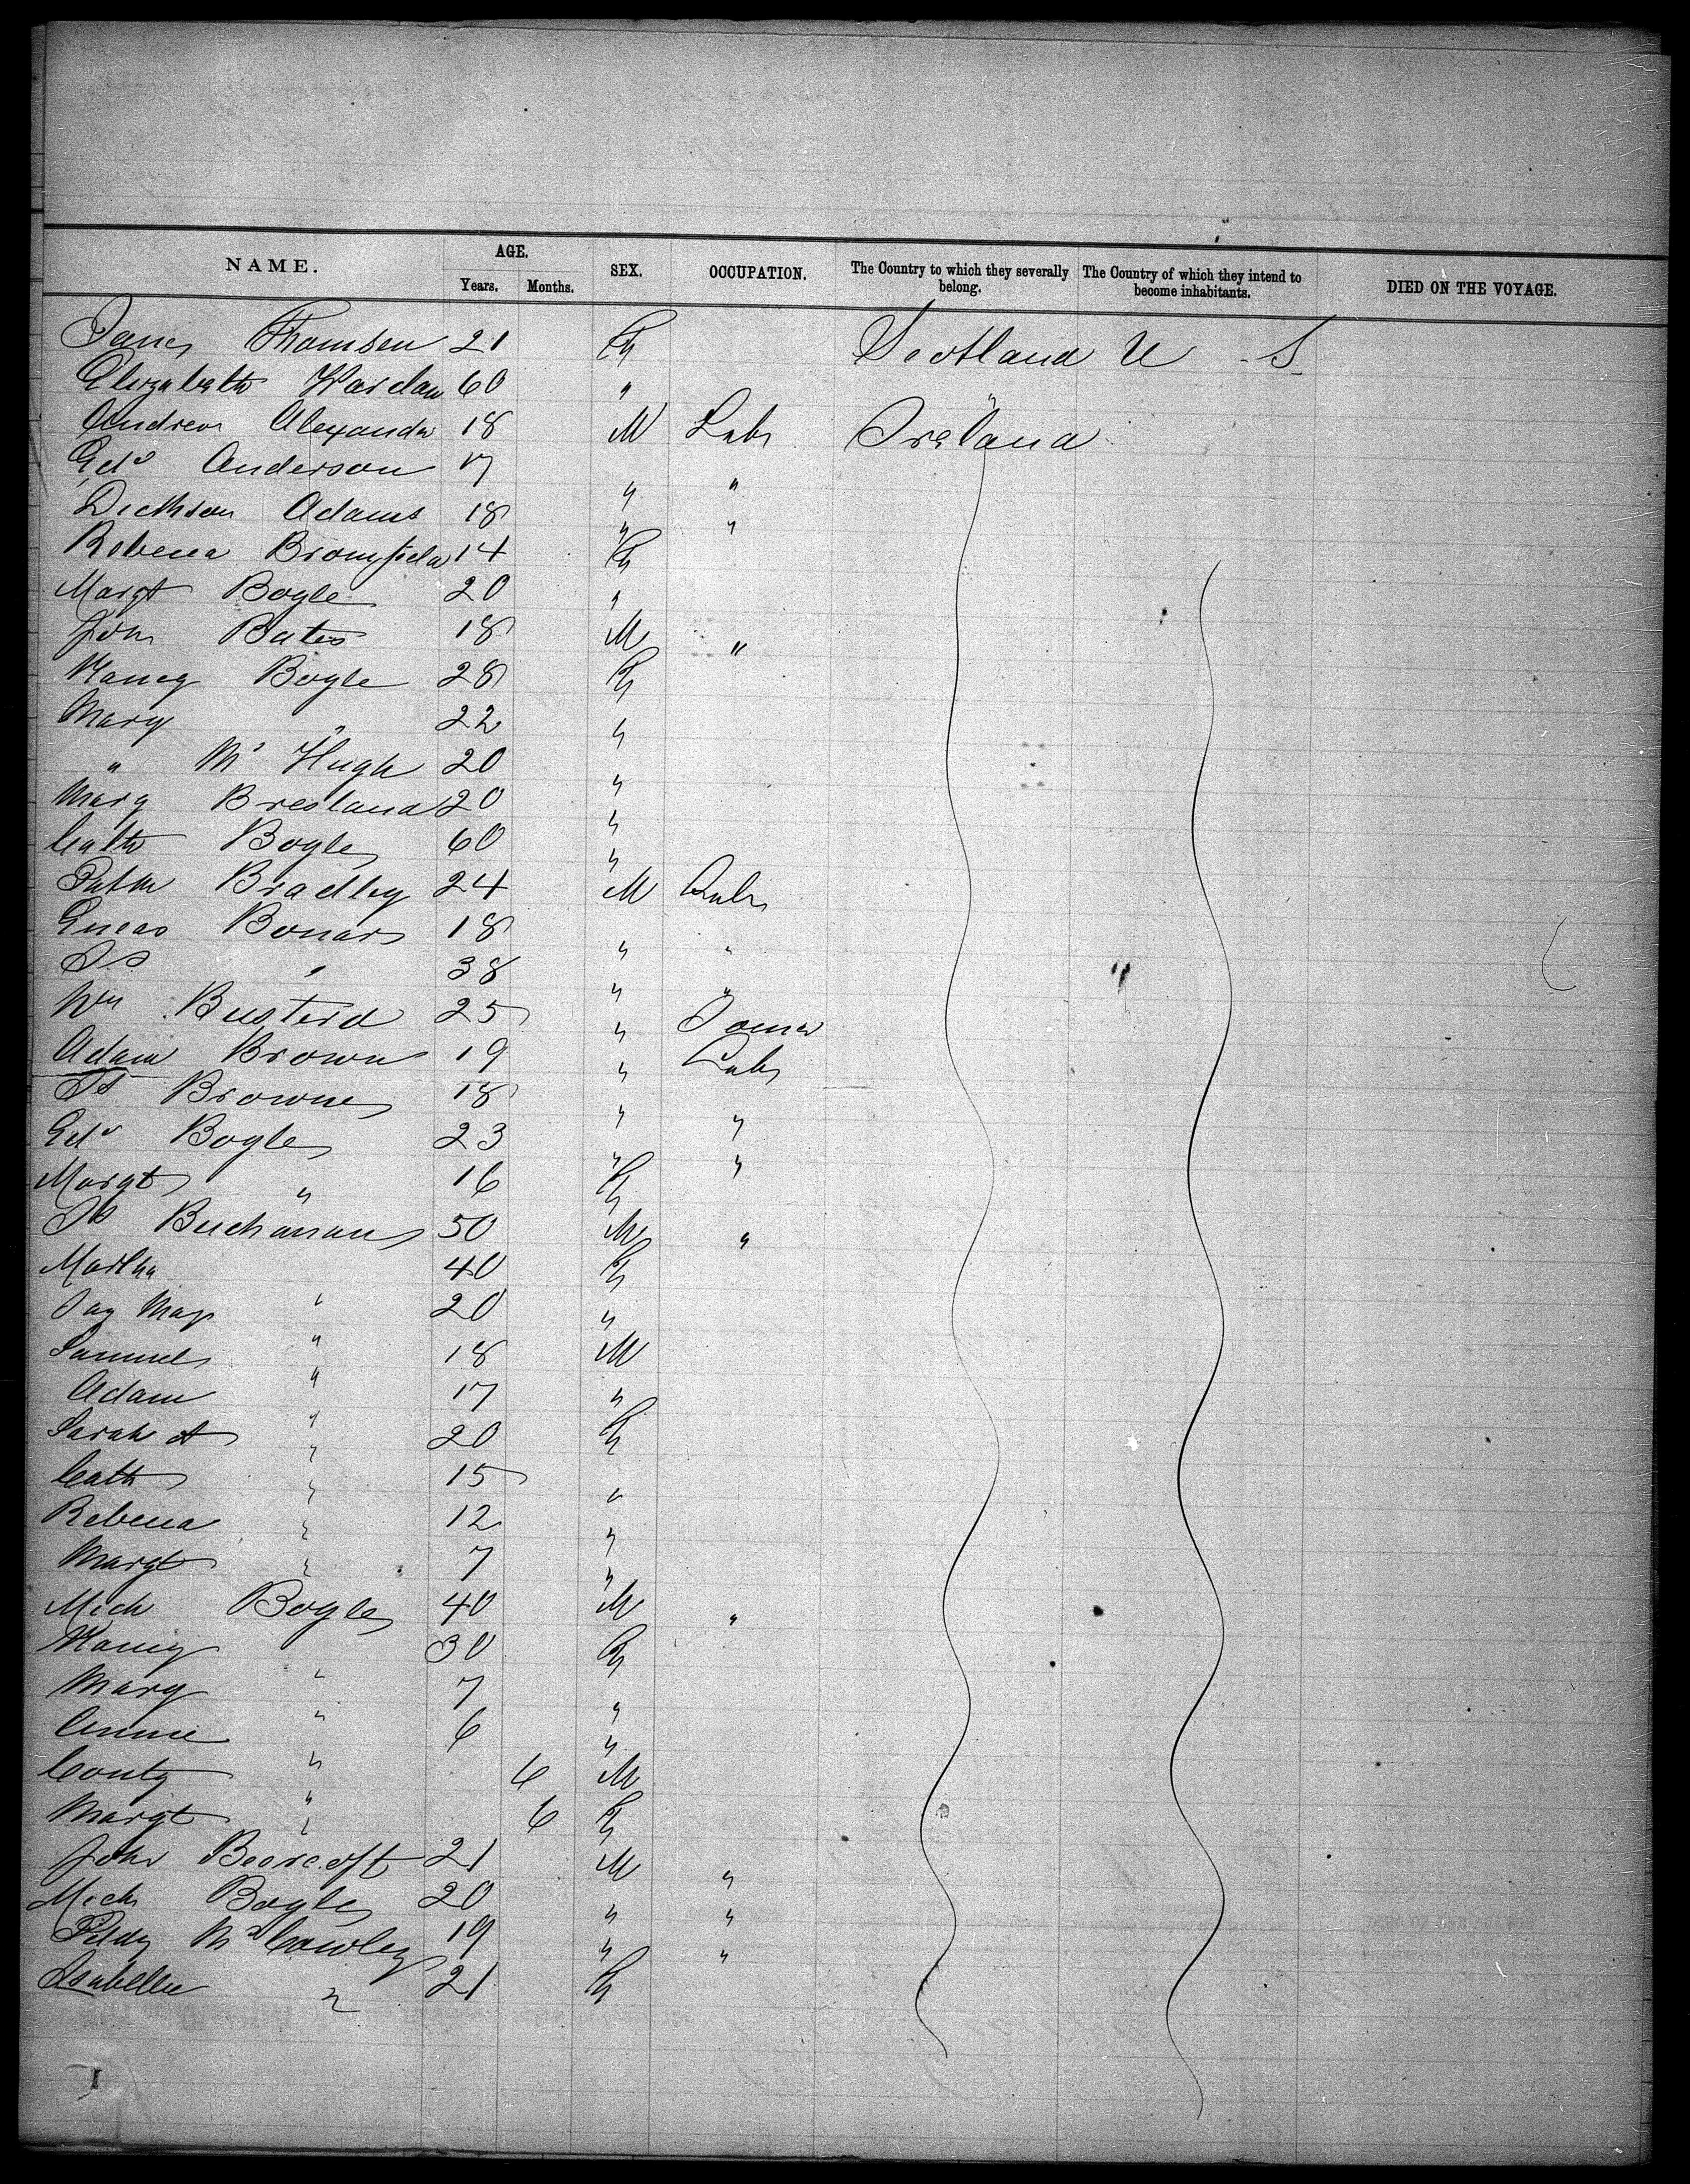 NAME. AGE. SEX. OCCUPATION. The Country to which they severally belong. The Country of which they intend to become inhabitants. DIED ON THE VOYAGE.
Years. Months.
Thomson 21 F Scotland U S
Elizabeth Wardlaw 60 "
Andrew Alexander 18 M Labr Ireland "
Edd Anderson 17 " "
Dickson Adams 18 " "
Rebecca 14 F
Margt Bogle 20 "
John Bates 18 M "
Nancy Bogle 28 F
Mary " 22 "
" Mc Hugh 20 "
Mary Bresland 20 "
Cath Bogle 60 "
Patk Bradley 24 M Labr
Eneas Bonar 18 " "
Js " 38 " "
Wm Busterd 25 "
Adam Brown 19 " Labr
Js Browne 18 " "
Edd Bogle 23 " "
Margt " 16 F
Js Buchanan 50 M "
Martha " 40 F
20 "
Samuel " 18 M
Adam " 17 "
Sarah A " 20 F
Cath " 15 "
Rebecca " 12 "
Margt " 7 "
Mich Bogle 40 M "
Nancy " 30 F
Mary " 7 "
Annie " 6 "
" 6 M
Margt " 6 F
John 21 M "
Mich Bogle 20 " "
Mc Cawley 19 " "
Isabella " 21 F
I